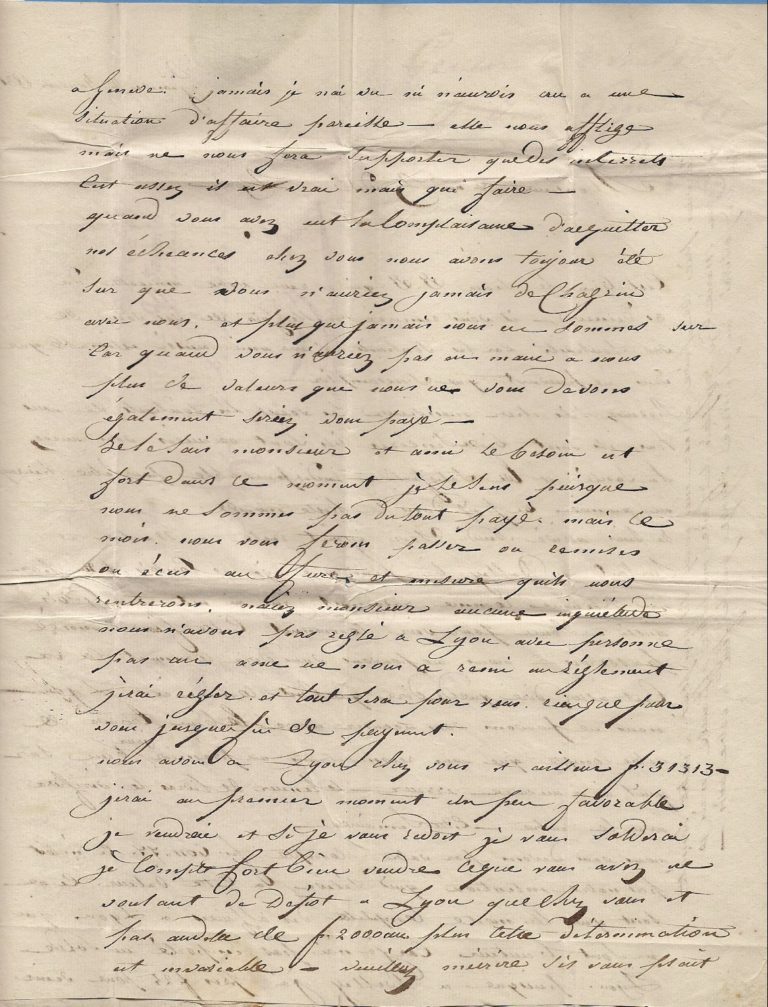 a Geneve. jamais je nai vu ni n'aurois cru a une
situation d'affaire pareille — elle nous afflige
mais ne nous fera supporter que des interrets
C'est assez il est vrai mais que faire —
quand vous avez eut la Complaisance d'acquitter
nos échéances chez vous nous avons toujour été
sur que vous n'auriez jamais de Chagrin
avec nous. et plus que jamais nous en sommes sur
Car quand vous n'auriez pas en main a nous
plus de valeurs que nous ne vous devons
également seriez vous payé —
Je le sais monsieur et ami le besoin est
fort dans ce moment je le sens puisque
nous ne sommes pas du tout payé. mais ce
mois. nous vous ferons passer ou remises
ou écus au fur et mesure quils nous
rentrerons. naiez monsieur aucune inquietude
nous n'avons pas reglé a Lyon avec personne
pas un ame ne nous a remi un Réglement
j'irai régler. et tout sera pour vous. rien que pour
vous jusques fin de payment.
nous avons a Lyon chez vous et ailleur f. 31313 —
j'irai au premier moment un peu favorable
je vendrai et si je vous redoit je vous solderai
je Compte fort bien vendre ceque vous avez ne
voulant de Dépot a Lyon que chez vous et
pas audela de f. 2000 au plus cette détermination
est invariable — veuillez mecrire sil vous plait